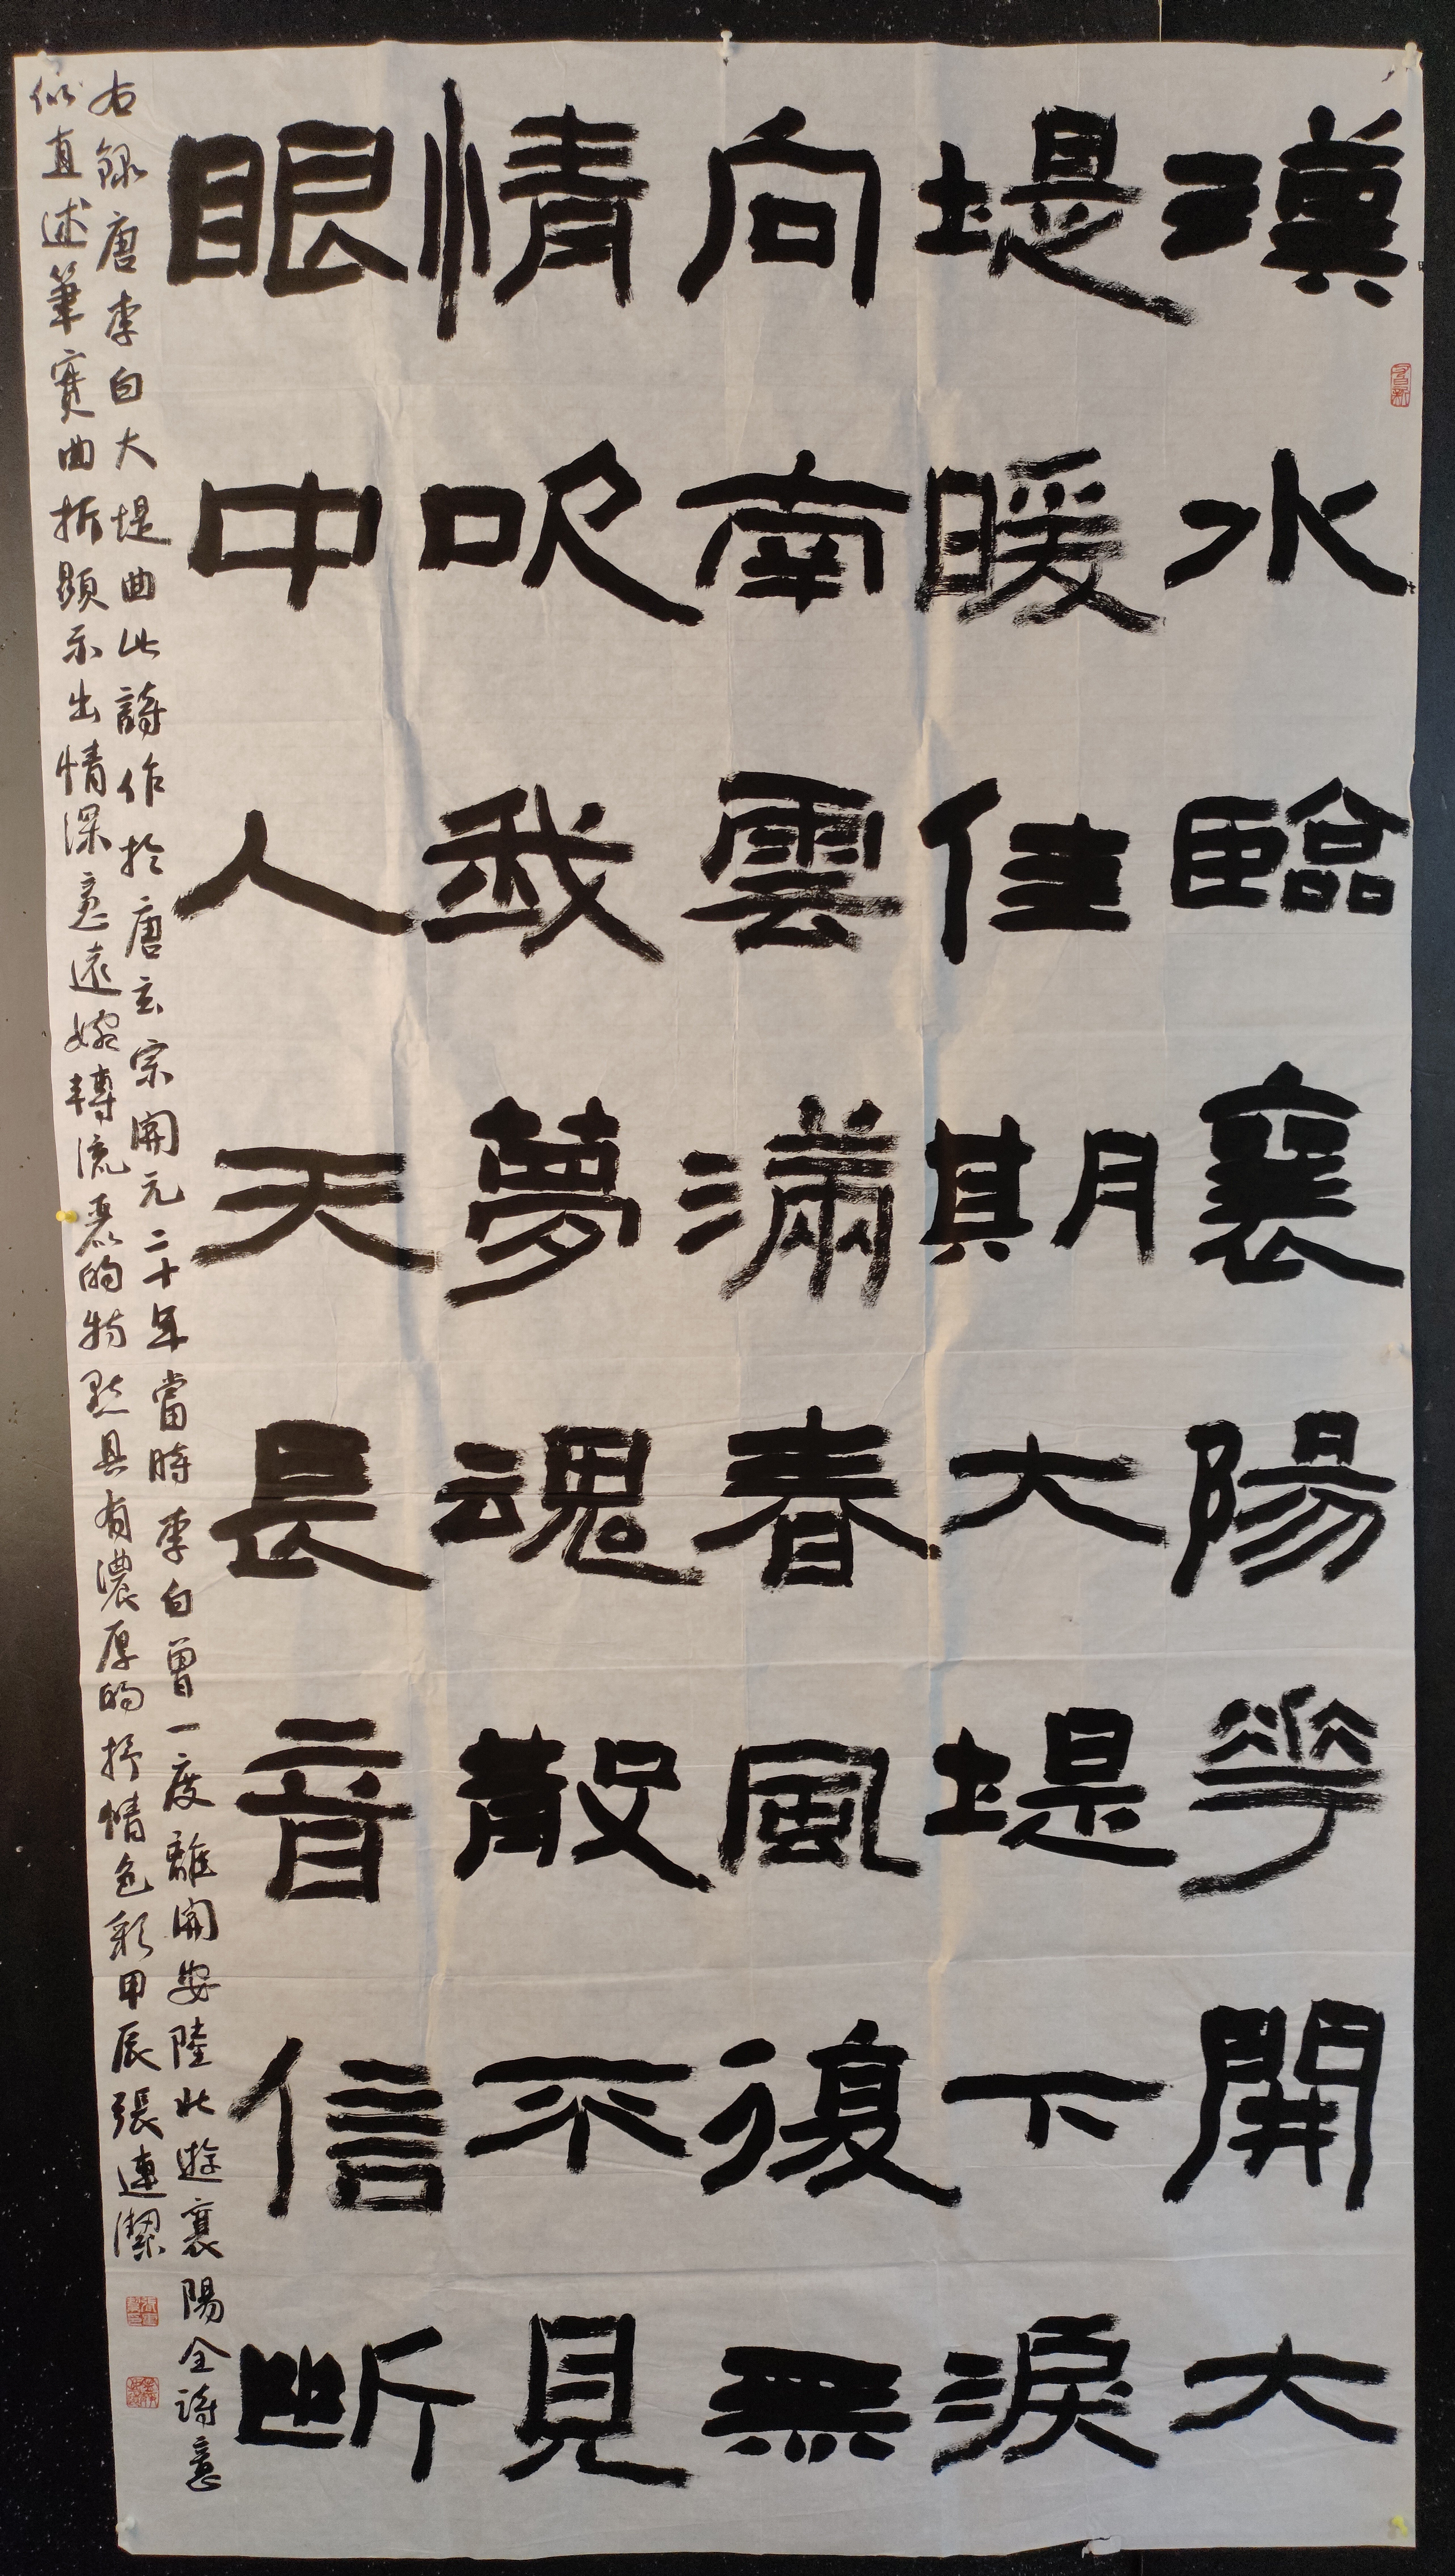 漢水臨襄陽花開大
堤暖佳期大堤下淚
向南雲滿春風復無
情吹我夢魂散不見
眼中人天長音信斷
右錄唐李白大堤曲此詩作於唐玄宗開元二十年當時李白曾一度離開安陸北遊襄陽全詩意
似直述筆實曲折顯示出情深意遠婉轉流麗的特點具有濃厚的抒情色彩甲辰張連潔